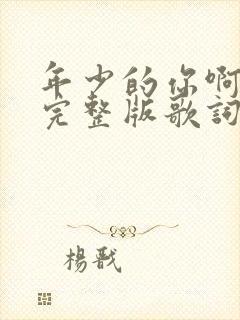 年少的你啊
完整版歌詞
楊戩